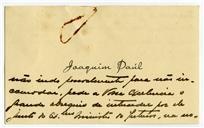 Joaquim Paúl
não indo pessoalmente para não in-
commodar, pede a Vossa Excellencia o
grande obsequio de interceder por ele
junto do Ex.mo Ministro do